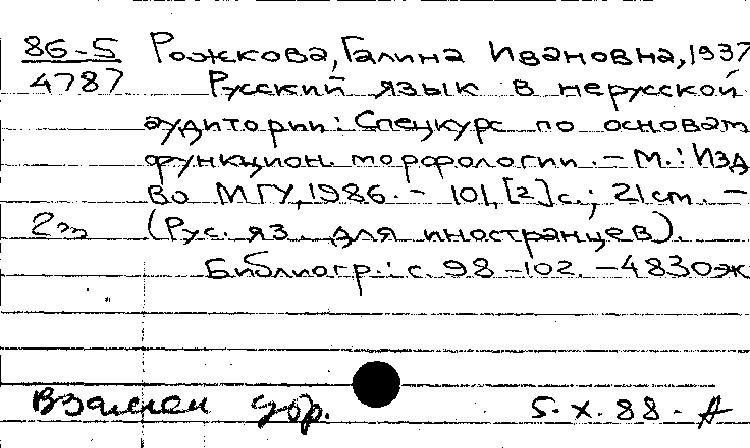 86-5 Рожкова, Галина Ивановна, 1937
4787 Русский язык в нерусской
аудитории: Спецкурс по основам
функцион. морфологии. - М.: Изд
во МГУ, 1986. - 101, [2] с.; 21 см. -
2э (Рус. яз. для иностранцев).
Библиогр.: с. 98-102. - 4830эк
Взамен убр. 5.X.88-А